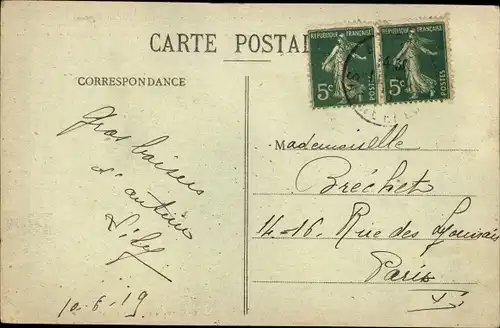 CARTE POSTAL
REPUBLIQUE FRANÇAISE
5c
POSTES
REPUBLIQUE FRANÇAISE
5c
POSTES
CORRESPONDANCE
Gros baisers
Mademoiselle
Bréchet
14-16. Rue des
Paris
10-6-19